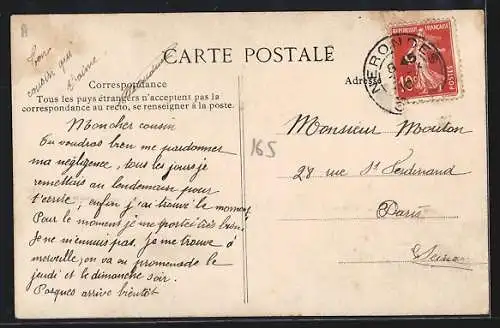 ton
cousin qui
t'aime
CARTE POSTALE
Correspondance
Tous les pays étrangers n'acceptent pas la
correspondance au recto, se renseigner à la poste.
Adresse
REPUBLIQUE FRANÇAISE
POSTES
10
NERONDES
165
Mon cher cousin
Tu voudras bien me pardonner
ma négligence, tous les jours je
remettais au lendemain pour
t'ecrire, enfin j'ai trouvé le moment
Pour le moment je me porte très bien.
Je ne m'ennuis pas. Je me trouve à
merveille, on va en promenade le
jeudi et le dimanche soir.
Pasques arrive bientôt
Monsieur Mouton
28 rue St Ferdinand
Paris
Seine